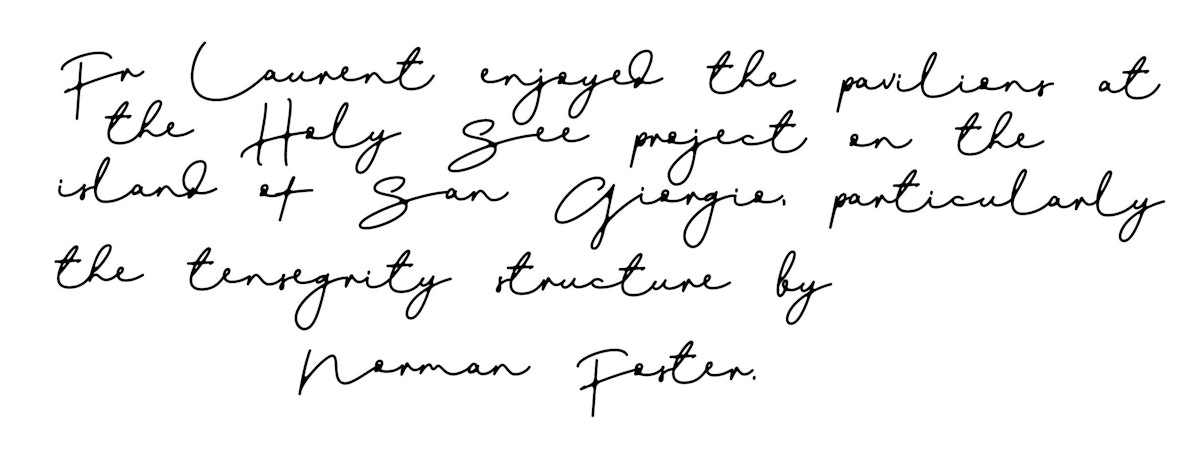 Fr Laurent enjoyed the pavilions at
the Holy See project on the
island of San Giorgio, particularly
the tensegrity structure by
Norman Foster.